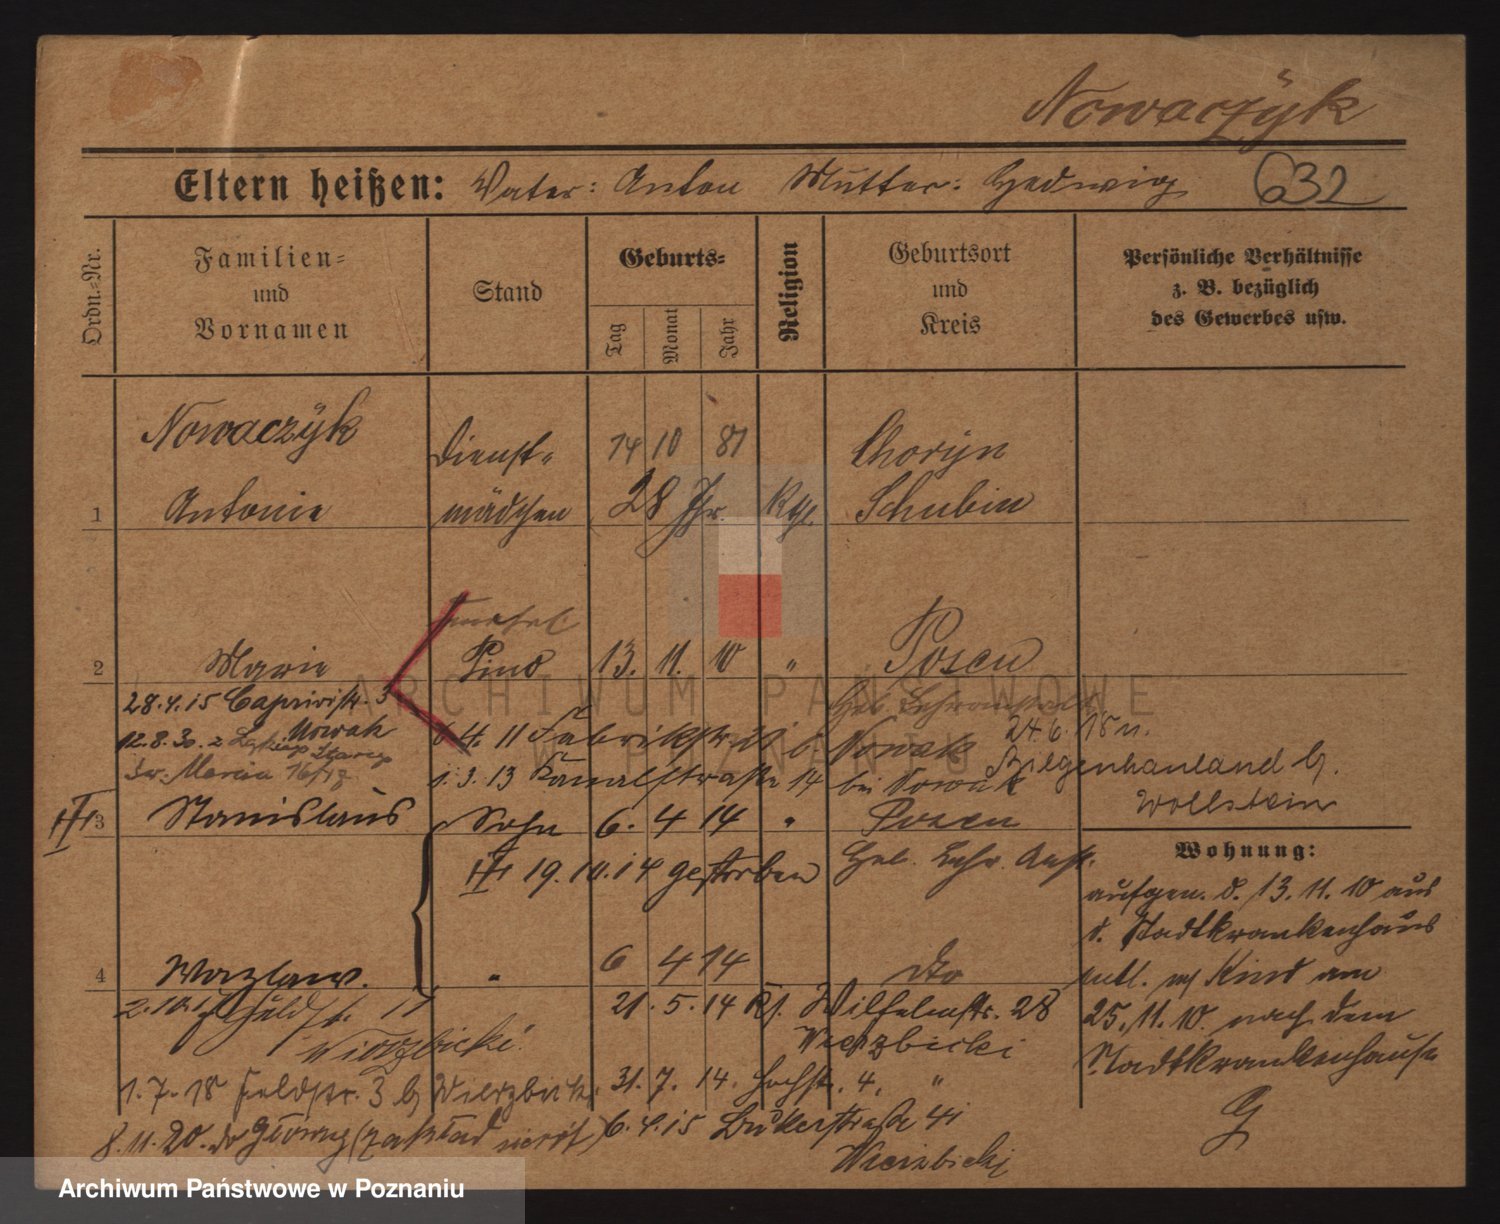 Nowaczÿk
Eltern heißen: Vater: Anton Mutter: Hedwig 632
Ordn.-Nr.
Familien- und Vornamen
Stand
Geburts-
Tag Monat Jahr
Religion
Geburtsort und Kreis
Persönliche Verhältnisse
z. B. bezüglich
des Gewerbes usw.
Nowaczÿk Dienst- 14 10 81 Chorÿn
1 Antonie mädchen 28 Jhr. Kth. Schubin
2 Marie Kind 13. 11. 10 " Posen
28.4.15 Caprivistr. 3
Nowak
12.8.30. z
św. Marcin 16/17
4. 11 Fabrikstr. b. Nowak 24.6.18 n.
1.3.13 Kanalstraße 14 bei Nowak
b.
Wollstein
3 Stanislaus Sohn 6. 4 14 " Posen
Wohnung:
19.10.14 gestorben Heb. Lehr. Anst.
aufgen. d. 13.11.10 aus
d. Stadtkrankenhaus
4 Wazlaw. " 6 4 14 dto
entl. m/ Kind am
21.5.14 Wilhelmstr. 28
Wierzbicki
25.11.10. nach dem
Stadtkrankenhause
1.7.18 Feldstr. 3 b Wierzbicki 31.7.14. Hochstr. 4. "
8.11.20. do Główny (zakład sierot) 6.4.15 Bukerstraße 41
Wierzbicki
ARCHIWUM PAŃSTWOWE
W POZNANIU
Archiwum Państwowe w Poznaniu